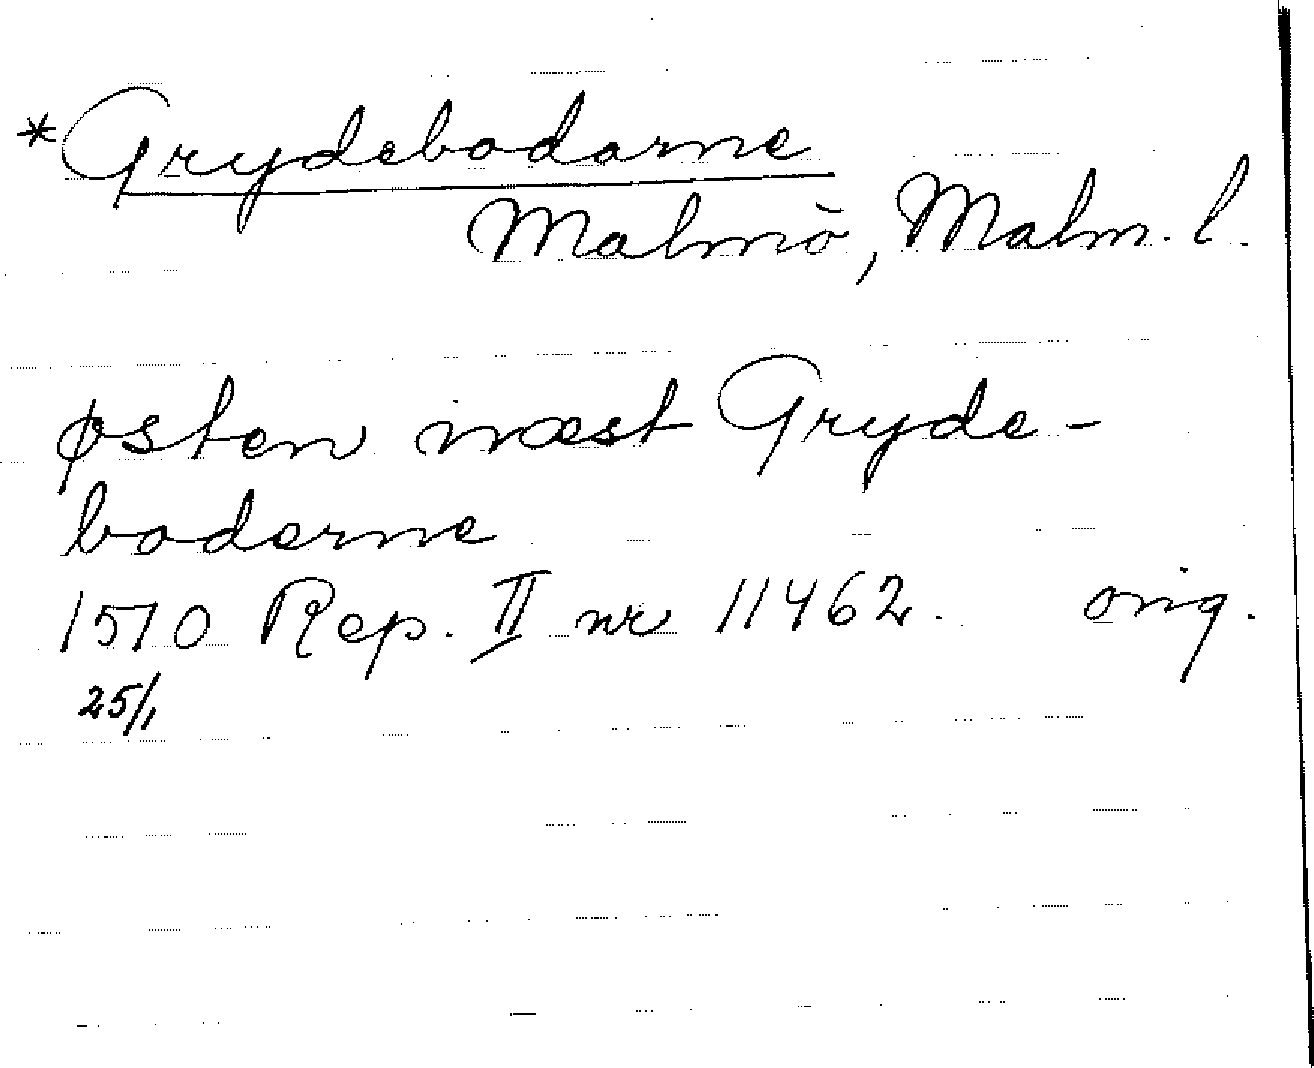 *Grydebodarne
Malmö, Malm. l.
østen næst Gryde-
boderne
1510 Rep. II nr 11462. orig.
25/1